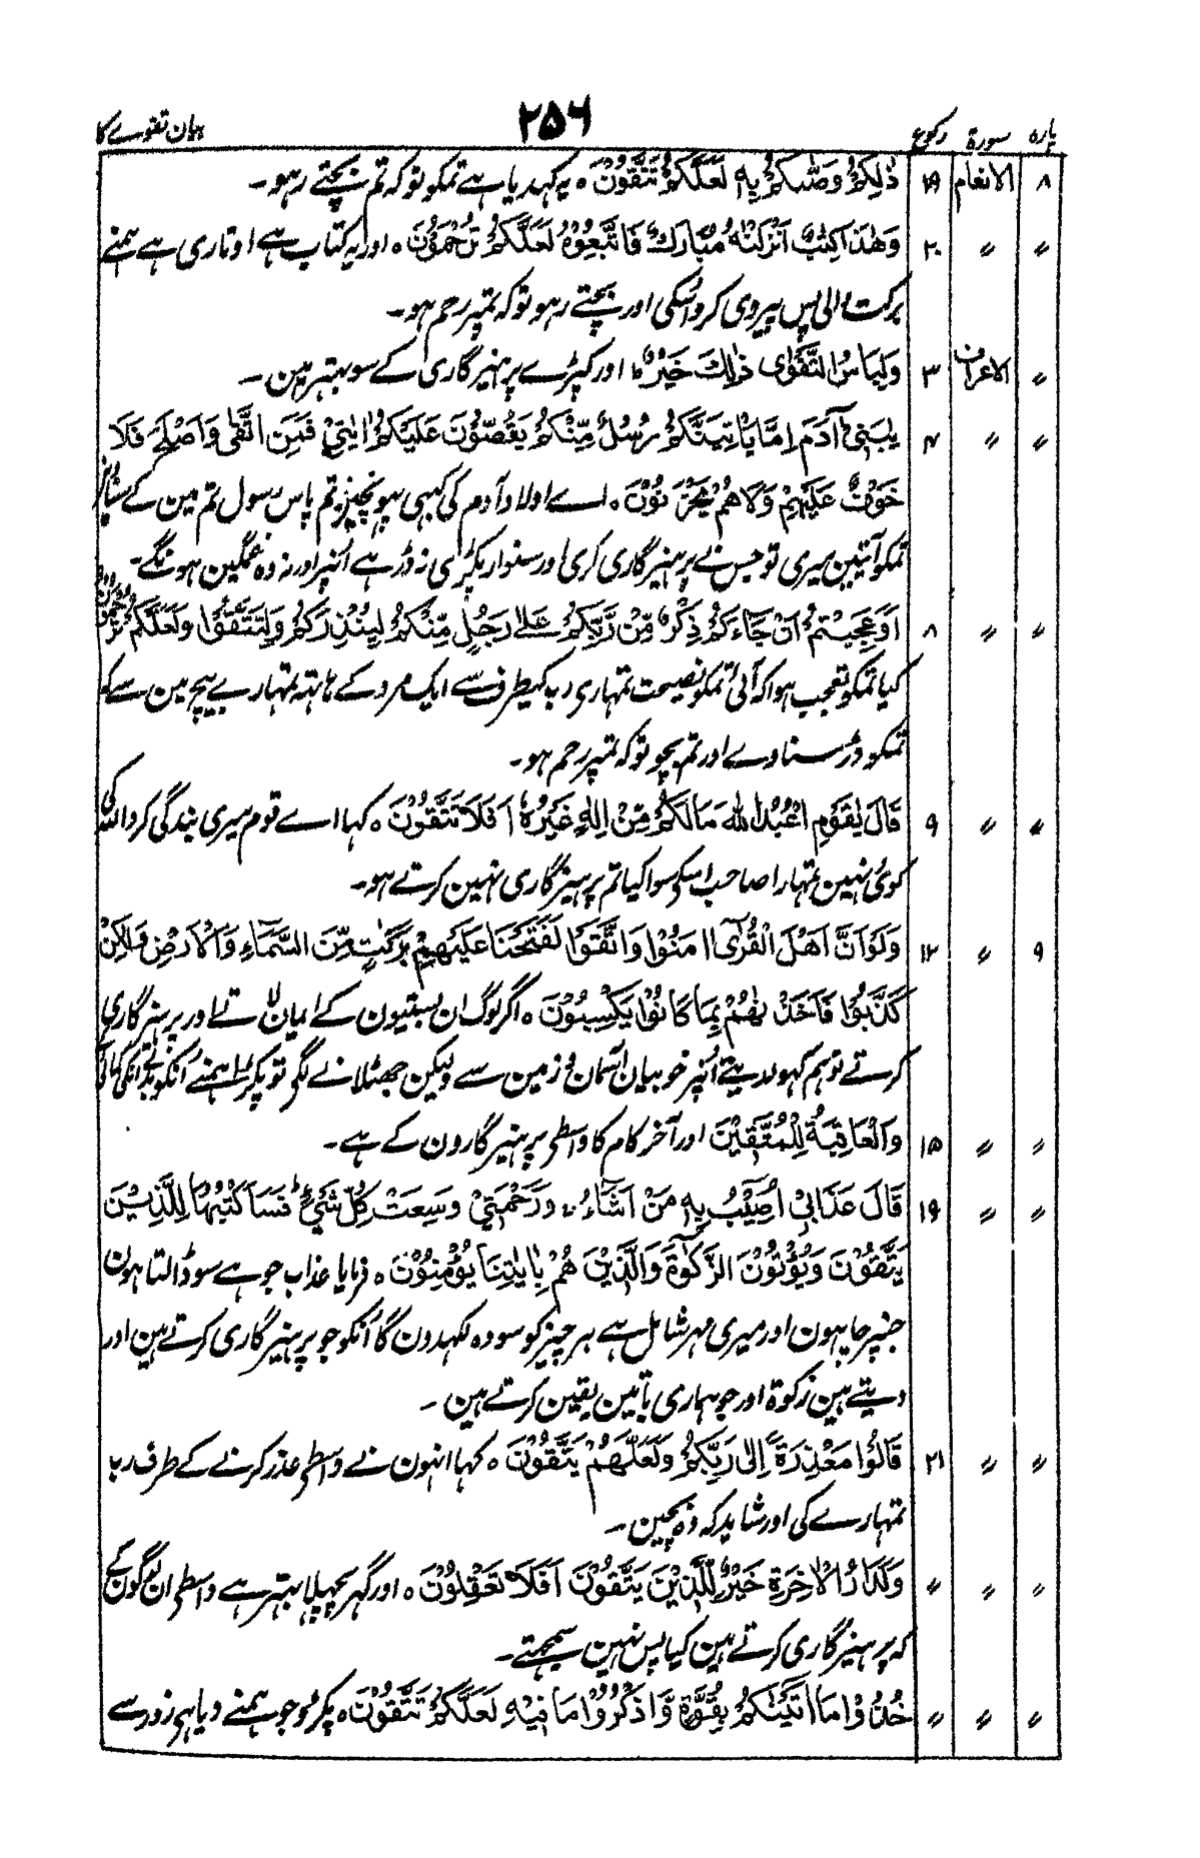 بیان تقوے کا ۲۵۶ رکوع سورة پارہ
۸ الانعام ۱۹ ذٰلِكُمْ وَصّٰىكُمْ بِهٖ لَعَلَّكُمْ تَتَّقُوْنَ ہ یہ کہدیا ہے تمکو تو کہ تم بچتے رہو۔
〃 〃 ۲۰ وَهٰذَا كِتٰبٌ اَنْزَلْنٰهُ مُبَارَكٌ فَاتَّبِعُوْهُ لَعَلَّكُمْ تُرْحَمُوْنَ ہ اور یہ کتاب ہے اوتاری ہے ہمنے
برکت والی پس پیروی کرو اسکی اور بچتے رہو تو کہ تمپر رحم ہو۔
〃 الاعراف ۳ وَلِبَاسُ التَّقْوٰى ذٰلِكَ خَيْرٌ ؕ اور کپڑے پرہیزگاری کے سو بہتر ہین۔
〃 〃 ۴ يٰبَنِىْٓ اٰدَمَ اِمَّا يَاْتِيَنَّكُمْ رُسُلٌ مِّنْكُمْ يَقُصُّوْنَ عَلَيْكُمْ اٰيٰتِىْ فَمَنِ اتَّقٰى وَاَصْلَحَ فَلَا
خَوْفٌ عَلَيْهِمْ وَلَاهُمْ يَحْزَنُوْنَ ہ اے اولاد آدم کی کبہی پہونچیں تم پاس رسول تم مین کے
تمکو آیتیں میری تو جس نے پرہیزگاری کری اور سنوار پکڑی نہ ڈر ہے اُنپر اور نہ وہ غمگین ہونگے۔
〃 〃 ۸ اَوَعَجِبْتُمْ اَنْ جَآءَكُمْ ذِكْرٌ مِّنْ رَّبِّكُمْ عَلٰى رَجُلٍ مِّنْكُمْ لِيُنْذِرَكُمْ وَلِتَتَّقُوْا وَلَعَلَّكُمْ تُرْحَمُوْنَ
کیا تمکو تعجب ہوا کہ آئی تمکو نصیحت تمہاری رب کیطرف سے ایک مرد کے ہاتہہ تمہارے بیچ مین سے کہ
تمکو ڈر سناوے اور تم بچو تو کہ تمپر رحم ہو۔
〃 〃 ۹ قَالَ يٰقَوْمِ اعْبُدُوا اللهَ مَالَكُمْ مِّنْ اِلٰهٍ غَيْرُهٗ ؕ اَفَلَا تَتَّقُوْنَ ہ کہا اے قوم میری بندگی کرو اللہ کی
کوئی نہین تمہارا صاحب اسکو سوا کیا تم پرہیزگاری نہین کرتے ہو۔
۹ 〃 ۱۲ وَلَوْاَنَّ اَهْلَ الْقُرٰٓى اٰمَنُوْا وَاتَّقَوْا لَفَتَحْنَا عَلَيْهِمْ بَرَكٰتٍ مِّنَ السَّمَآءِ وَالْاَرْضِ وَلٰكِنْ
كَذَّبُوْا فَاَخَذْنٰهُمْ بِمَا كَانُوْا يَكْسِبُوْنَ ہ اگر لوگ ان بستیون کے ایمان لاتے اور پرہیزگاری
کرتے تو ہم کہولدیتے اُنپر خوبیان آسمان و زمین سے ولیکن جھٹلانے لگے تو پکڑا ہمنے اُنکو بدلے انکی کمائی کا
〃 〃 ۱۵ وَالْعَاقِبَةُ لِلْمُتَّقِيْنَ اور آخر کام کا واسطے پرہیزگارون کے ہے۔
〃 〃 ۱۹ قَالَ عَذَابِىْٓ اُصِيْبُ بِهٖ مَنْ اَشَآءُ ۚ وَرَحْمَتِىْ وَسِعَتْ كُلَّ شَىْءٍ ؕ فَسَاَكْتُبُهَا لِلَّذِيْنَ
يَتَّقُوْنَ وَيُؤْتُوْنَ الزَّكٰوةَ وَالَّذِيْنَ هُمْ بِاٰيٰتِنَا يُؤْمِنُوْنَ ہ فرمایا عذاب جو ہے سو ڈالتا ہوں
جنپر چاہون اور میری مہر شامل ہے ہر چیز کو سو وہ لکہدون گا اُنکو جو پرہیزگاری کرتے ہین اور
دیتے ہین زکوة اور جو ہماری باتین یقین کرتے ہین ۔
〃 〃 ۲۱ قَالُوْا مَعْذِرَةً اِلٰى رَبِّكُمْ وَلَعَلَّهُمْ يَتَّقُوْنَ ہ کہا انہون نے واسطے عذر کرنے کے طرف رب
تمہارے کی اور شاید کہ وہ بچین۔
〃 〃 〃 وَلَلدَّارُ الْاٰخِرَةُ خَيْرٌ لِّلَّذِيْنَ يَتَّقُوْنَ اَفَلَا تَعْقِلُوْنَ ہ اور گہر پچہلا بہتر ہے واسطے ان لوگون کے
کہ پرہیزگاری کرتے ہین کیا پس نہین سمجہتے۔
〃 〃 〃 خُذُوْا مَا اٰتَيْنٰكُمْ بِقُوَّةٍ وَّاذْكُرُوْا مَا فِيْهِ لَعَلَّكُمْ تَتَّقُوْنَ ہ پکڑو جو ہمنے دیا ہے زور سے